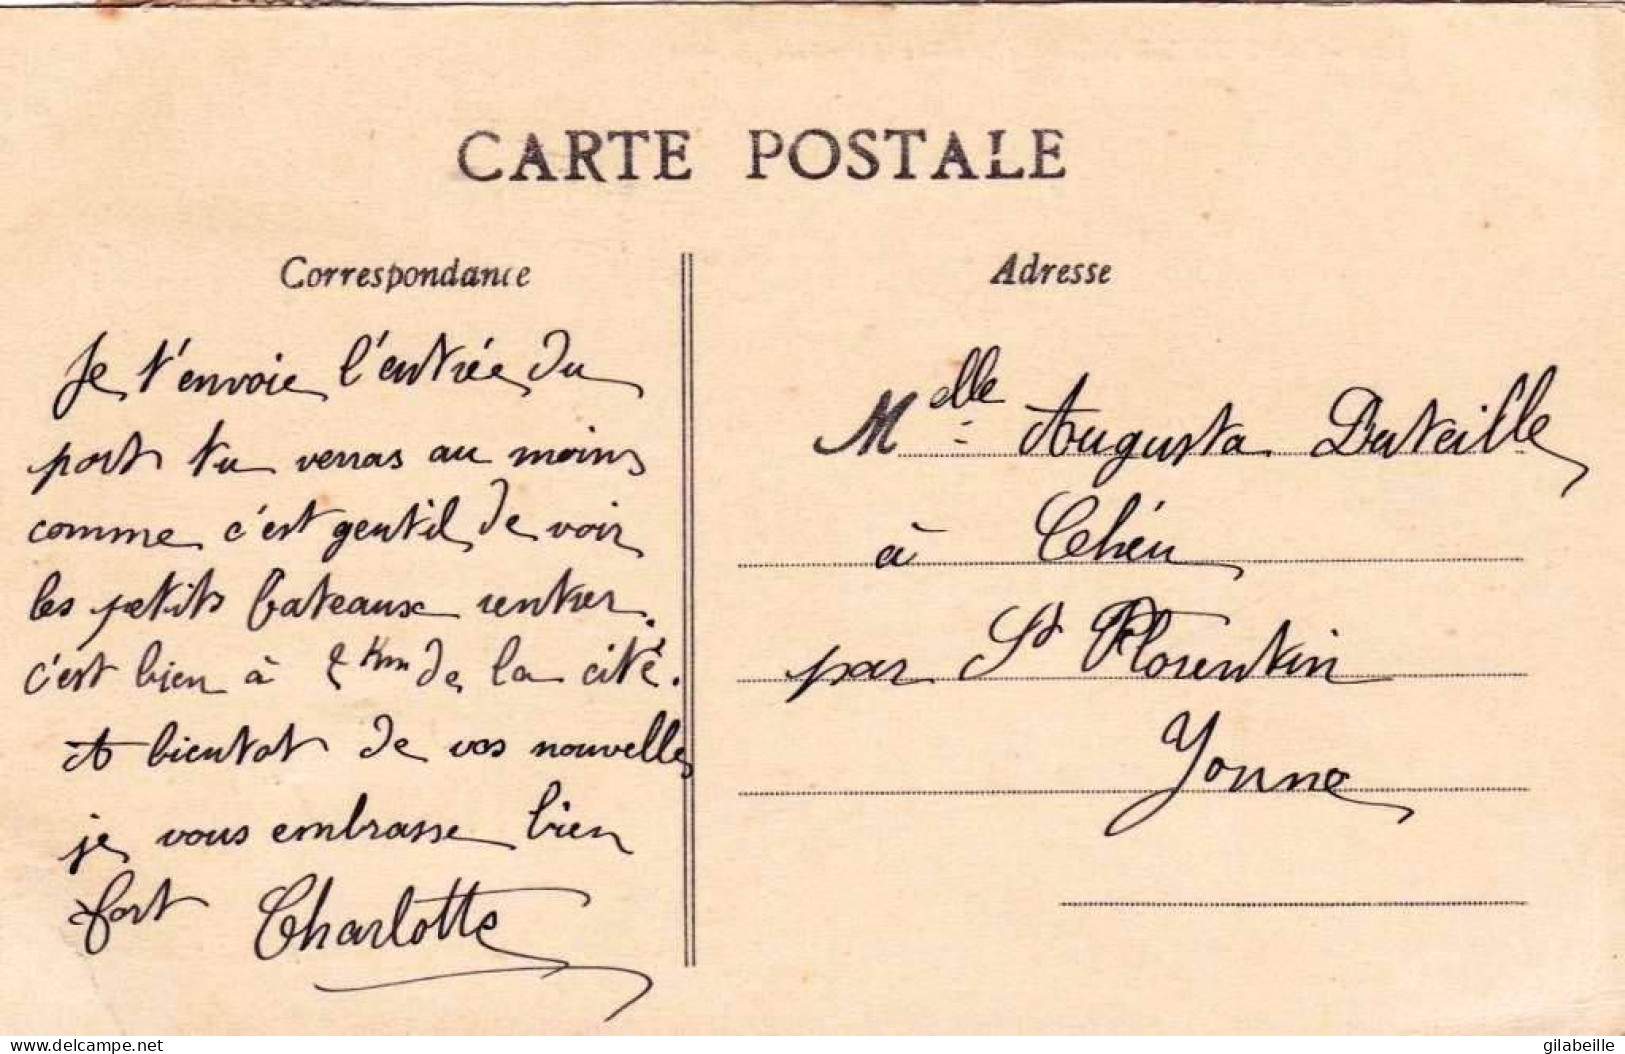 CARTE POSTALE
Correspondance
Je t'envoie l'entrée du
port tu verras au moins
comme c'est gentil de voir
les petits bateaux rentrer.
c'est bien à 2 Km de la cité.
A bientot de vos nouvelles
je vous embrasse bien
fort Charlotte
Adresse
Melle Augusta Duteille
à Chéu
par St Florentin
Yonne
delcampe.net
gilabeille